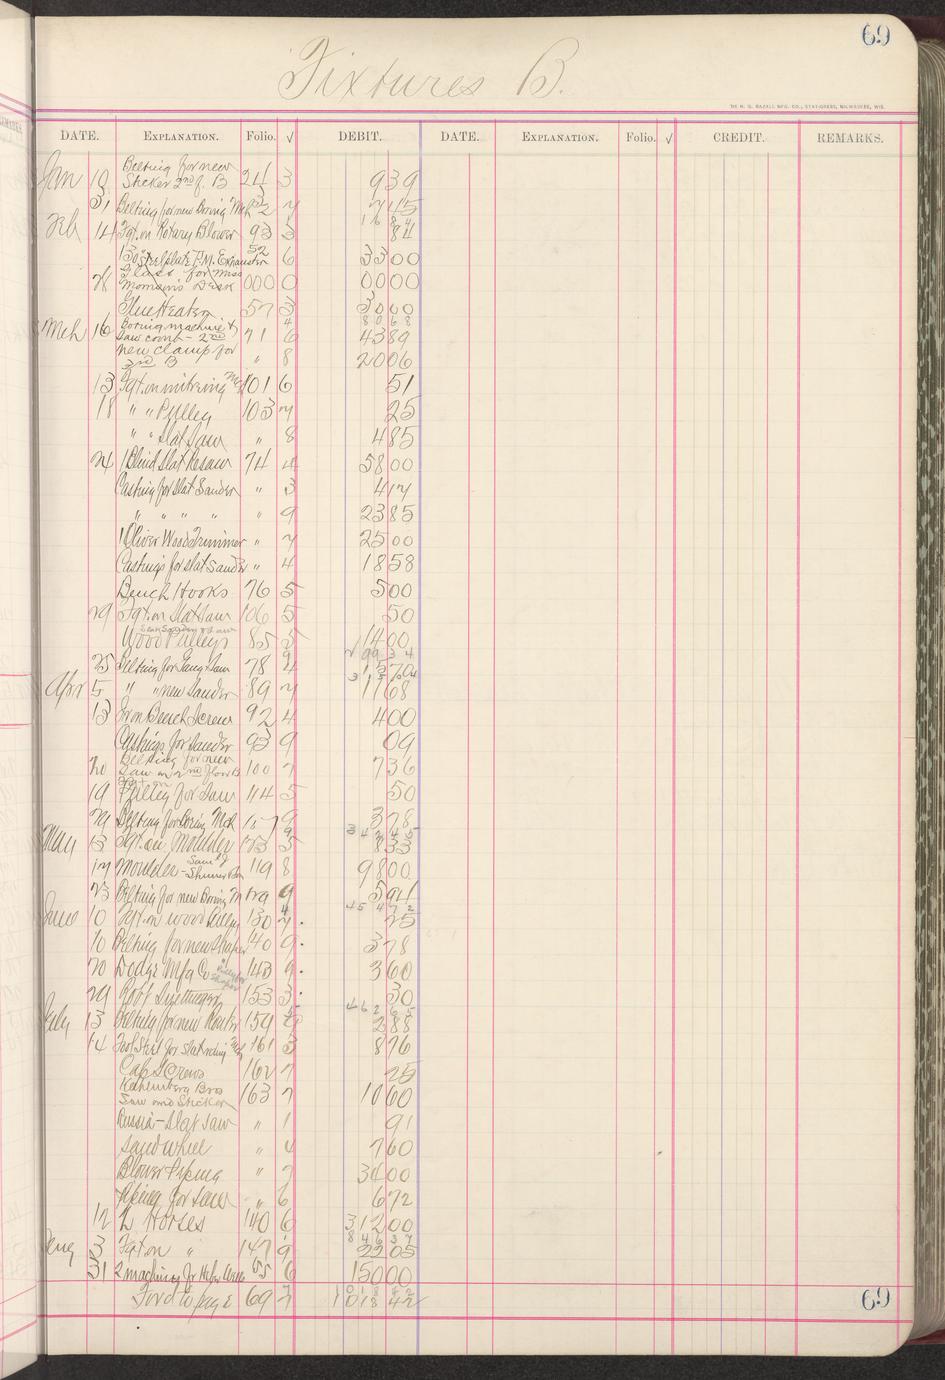 69
Fixtures B.
THE H. G. RAZALL MFG. CO., STATIONERS, MILWAUKEE, WIS.
DATE. EXPLANATION. Folio. √ DEBIT. DATE. EXPLANATION. Folio. √ CREDIT. REMARKS.
Jan 10 Belting for new
Sticker 2nd f. B 3 9 39
31 Belting for new Boring Mch 7 7 15
16 84
Feb 14 Fgt. on Rotary Blower 93 3 84
52 6 33 00
28 Glass for Miss
Morrison's Desk 000 0 00 00
Glue Heater 57 3 30 00
80 68
Mch 16 Boring machine &
Saw comb - 2nd 71 6 43 89
new clamp for
3rd B " 8 20 06
13 Fgt. on mitreing Mch 101 6 51
18 " " Pulley 103 7 25
" " Slat Saw " 8 4 85
24 1 Blind Slat Resaw 74 4 58 00
Casting for Slat Sander " 3 4 17
" " " " " 9 23 85
1 Oliver Wood Trimmer " 7 25 00
Castings for Slat Sander " 4 18 58
Bench Hooks 76 5 5 00
29 Fgt. on Slat Saw 106 5 50
Wood Pulleys 85 5 14 00
299 34
25 Belting for Gang Saw 78 4 15 70
315 04
Apr 5 " " new Sander 89 7 11 68
13 Iron Bench Screw 92 4 4 00
Castings for Sander 93 9 09
20 Belting for new
Saw on 2nd floor B 100 7 7 36
19 Fgt. on
Pulley for Saw 114 5 50
29 Belting for Boring Mch 157 9 3 78
342 45
May 13 Fgt. on Moulder 173 5 8 33
17 Moulder - Sam'l J
Shimer 119 8 98 00
23 Belting for new Boring M 129 9 5 94
454 72
June 10 Fgt. on wood Pulley 130 7 25
10 Belting for new Shaper 140 9 3 78
20 Dodge Mfg Co Pulley for
Shaper 143 9 3 60
29 153 3 30
462 65
July 13 Belting for new Router 159 2 88
14 Tool Steel for Slat 161 3 8 76
Cap Screws 162 7 25
Kahlenberg Bros
Saw and Sticker 163 7 10 60
Russia - Slat Saw " 1 91
Sand wheel " 4 7 60
Blower Piping " 7 34 00
Piping for Saw " 6 6 72
12 2 Horses 140 6 312 00
846 37
Aug 3 Fgt on " 147 9 22 05
31 2 6 150 00
Ford to page 69 7 1018 42
69